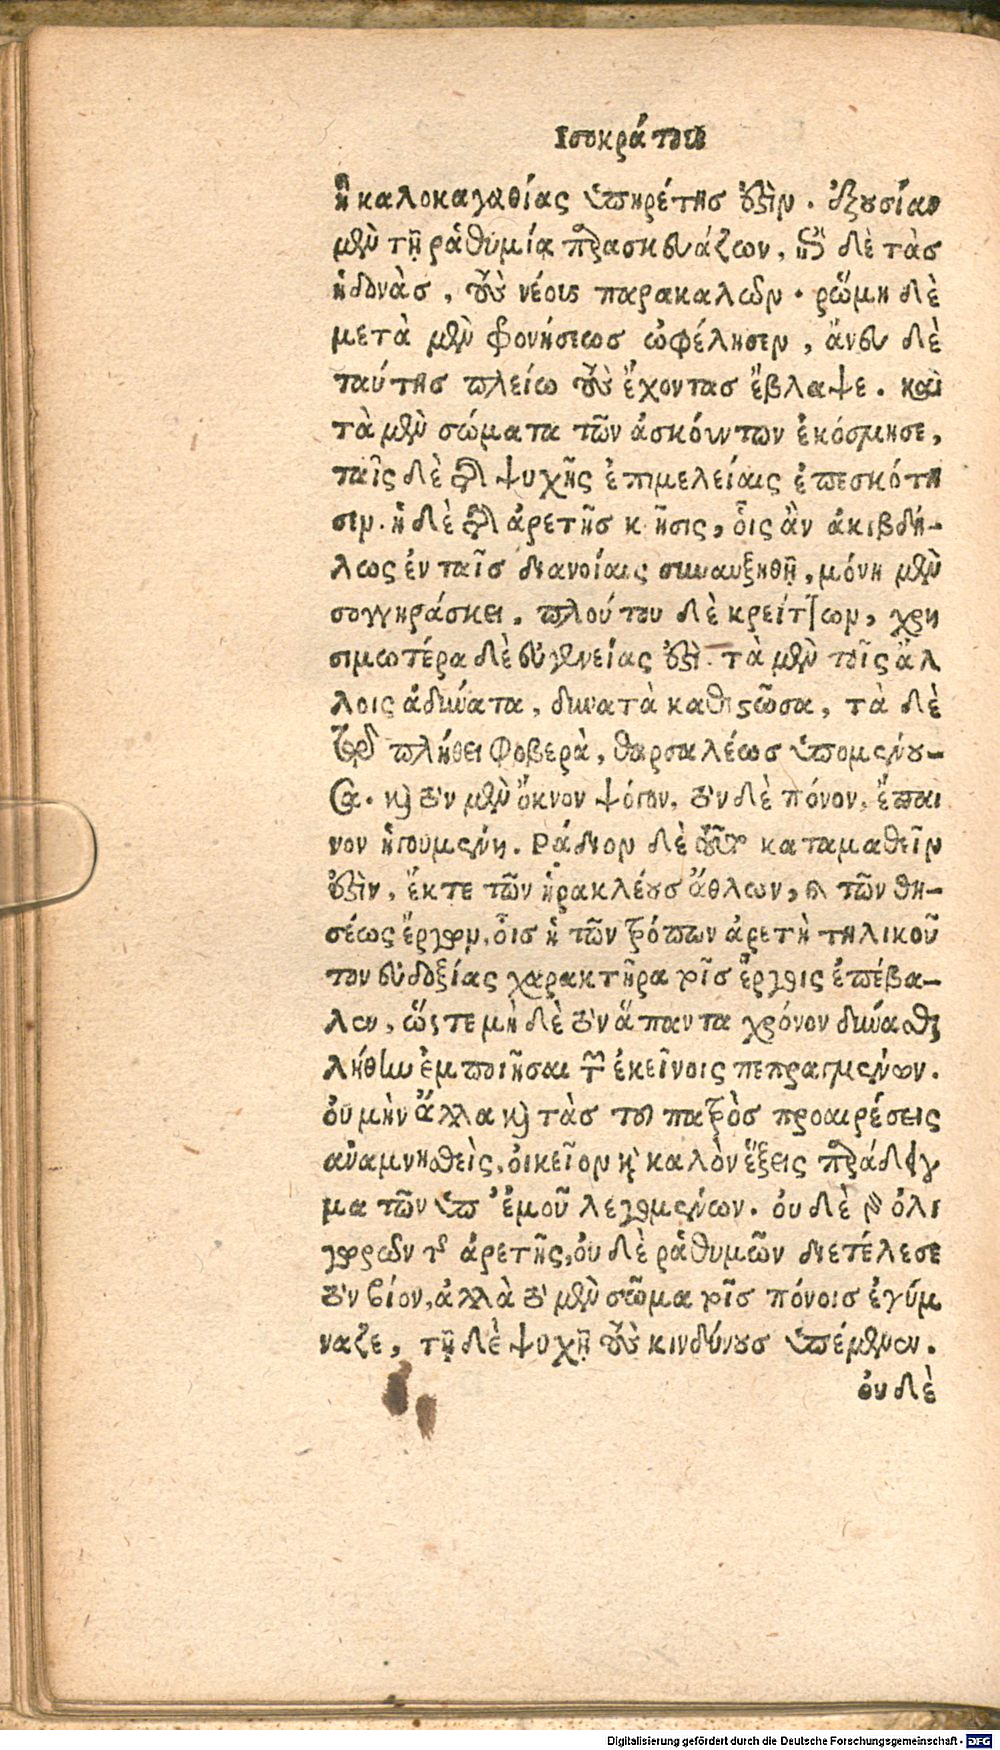 Ισοκράτους
ἢ καλοκαγαθίας ὑπηρέτης ἐστὶν. ἐξουσίαν
μὲν τῇ ῥᾳθυμίᾳ παρασκευάζων, ἐπὶ δὲ τὰς
ἡδονὰς, τοὺς νέους παρακαλῶν. ῥώμη δὲ
μετὰ μὲν φρονήσεως ὠφέλησεν, ἄνευ δὲ
ταύτης πλείω τοὺς ἔχοντας ἔβλαψε. καὶ
τὰ μὲν σώματα τῶν ἀσκούντων ἐκόσμησε,
ταῖς δὲ τῆς ψυχῆς ἐπιμελείαις ἐπεσκότη
σεν. ἡ δὲ τῆς ἀρετῆς κτῆσις, οἷς ἂν ἀκιβδή-
λως ἐν ταῖς διανοίαις συναυξηθῇ, μόνη μὲν
συγγηράσκει. πλούτου δὲ κρείττων, χρη
σιμωτέρα δὲ εὐγενείας ἐστὶ. τὰ μὲν τοῖς ἄλ
λοις ἀδύνατα, δυνατὰ καθιστῶσα, τὰ δὲ
τῷ πλήθει φοβερὰ, θαρσαλέως ὑπομένου-
σα. καὶ τὸν μὲν ὄκνον ψόγον, τὸν δὲ πόνον, ἔπαι
νον ἡγουμένη. Ράδιον δὲ τοῦτο καταμαθεῖν
ἐστὶν, ἔκ τε τῶν ἡρακλέους ἄθλων, καὶ τῶν θη-
σέως ἔργων, οἷς ἡ τῶν τρόπων ἀρετὴ τηλικοῦ
τον εὐδοξίας χαρακτῆρα τοῖς ἔργοις ἐπέβα-
λεν, ὥςτε μὴ δὲ τὸν ἅπαντα χρόνον δύνασθαι
λήθην ἐμποιῆσαι τῶν ἐκείνοις πεπραγμένων.
οὐ μὴν ἄλλα καὶ τὰς τοῦ πατρὸς προαιρέσεις
ἀναμνησθεὶς, οἰκεῖον καὶ καλὸν ἕξεις παράδειγ
μα τῶν ὑπ᾽ ἐμοῦ λεγομένων. οὐ δὲ γὰρ ὀλι
γωρῶν τῆς ἀρετῆς, οὐ δὲ ῥᾳθυμῶν διετέλεσε
τὸν βίον, ἀλλὰ τὸ μὲν σῶμα τοῖς πόνοις ἐγύμ
ναζε, τῇ δὲ ψυχῇ τοὺς κινδύνους ὑπέμενεν.
οὐ δὲ
Digitalisierung gefördert durch die Deutsche Forschungsgemeinschaft - DFG